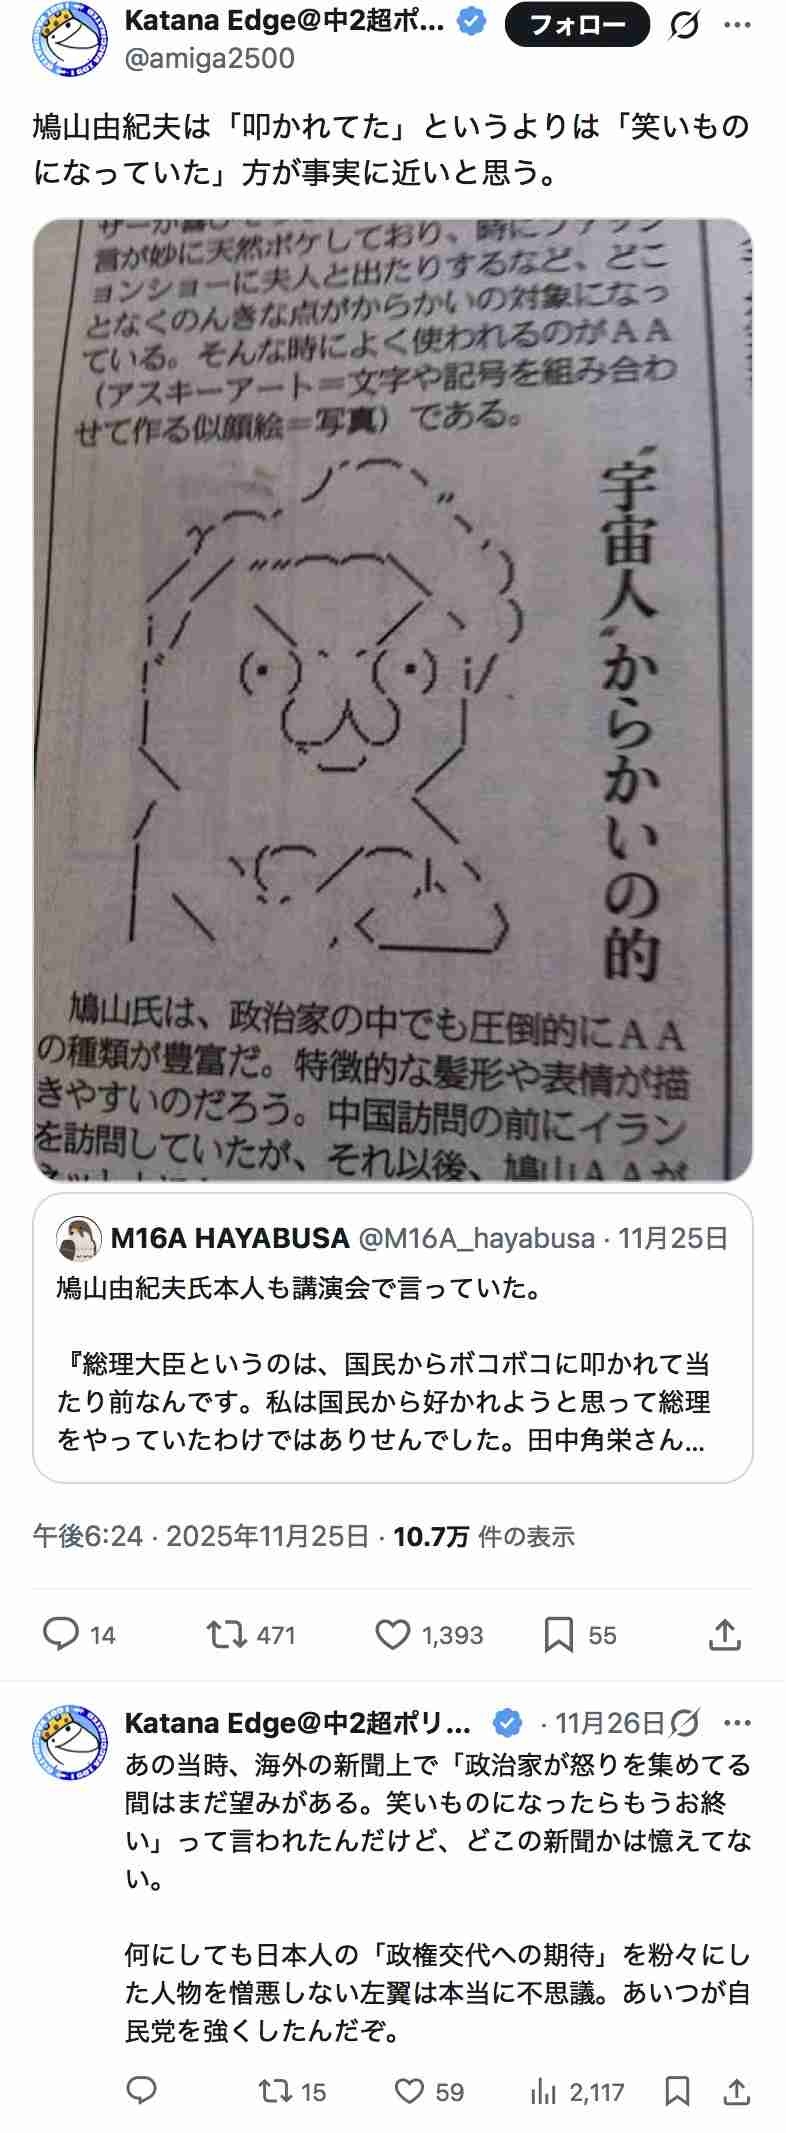 Katana Edge@中2超ポ...
フォロー
@amiga2500
鳩山由紀夫は「叩かれてた」というよりは「笑いもの
になっていた」方が事実に近いと思う。
言が妙に天然ボケしており、時にファッシ
ョンショーに夫人と出たりするなど、どこ
となくのんきな点がからかいの対象になっ
ている。そんな時によく使われるのがＡＡ
（アスキーアート＝文字や記号を組み合わ
せて作る似顔絵＝写真）である。
〝宇宙人〟からかいの的
鳩山氏は、政治家の中でも圧倒的にＡＡ
の種類が豊富だ。特徴的な髪形や表情が描
きやすいのだろう。中国訪問の前にイラン
を訪問していたが、それ以後、鳩山ＡＡが
M16A HAYABUSA @M16A_hayabusa · 11月25日
鳩山由紀夫氏本人も講演会で言っていた。
『総理大臣というのは、国民からボコボコに叩かれて当
たり前なんです。私は国民から好かれようと思って総理
をやっていたわけではありせんでした。田中角栄さん...
午後6:24 · 2025年11月25日 · 10.7万 件の表示
14 471 1,393 55
Katana Edge@中2超ポリ... · 11月26日
あの当時、海外の新聞上で「政治家が怒りを集めてる
間はまだ望みがある。笑いものになったらもうお終
い」って言われたんだけど、どこの新聞かは憶えてな
い。
何にしても日本人の「政権交代への期待」を粉々にし
た人物を憎悪しない左翼は本当に不思議。あいつが自
民党を強くしたんだぞ。
15 59 2,117